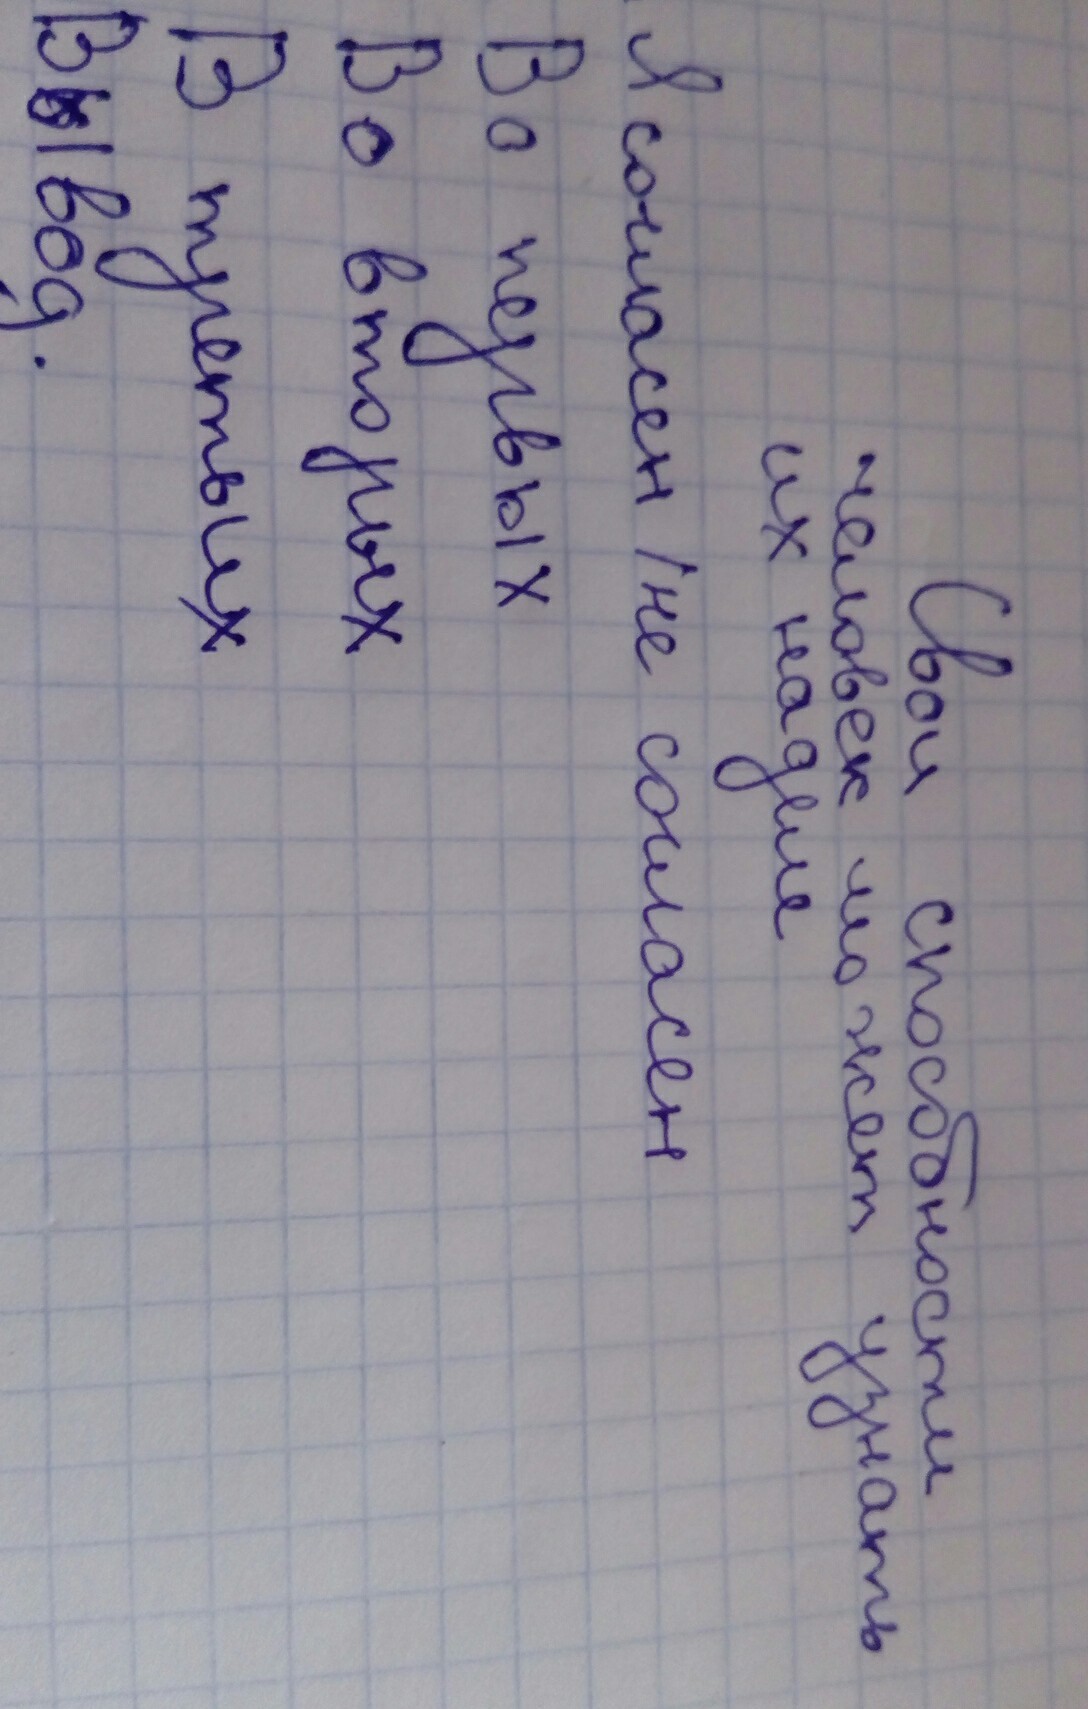 Свои способности
человек может узнать
их наделе
Я согласен / не согласен
Во первых
Во вторых
В третьих
Вывод.